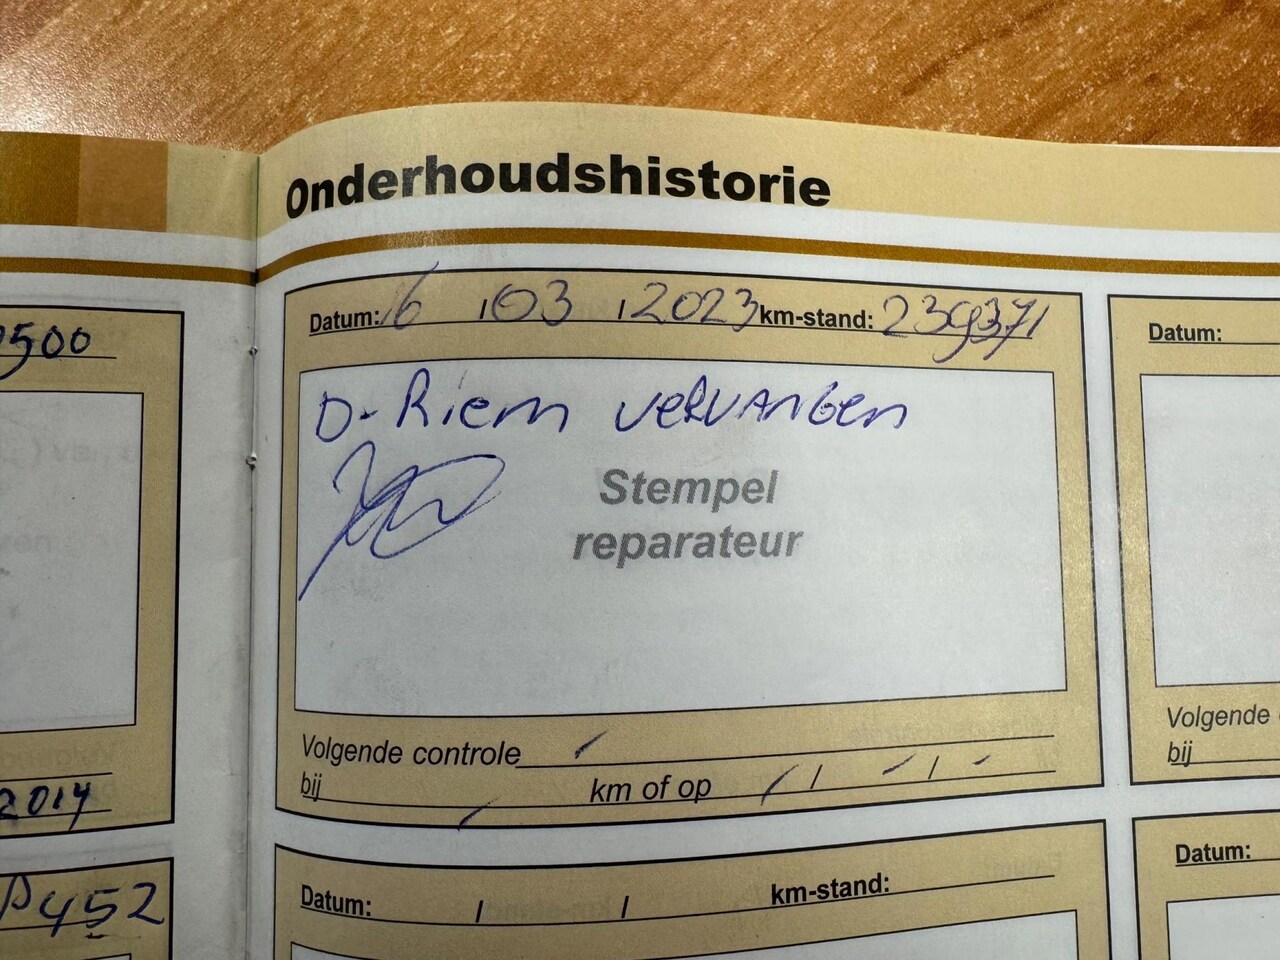 Onderhoudshistorie
Datum: 16 / 03 / 2023 km-stand: 239371
D-Riem vervangen
Stempel
reparateur
Volgende controle
bij km of op / /
Datum: / / km-stand:
500
2014
452
Datum:
Volgende
bij
Datum: